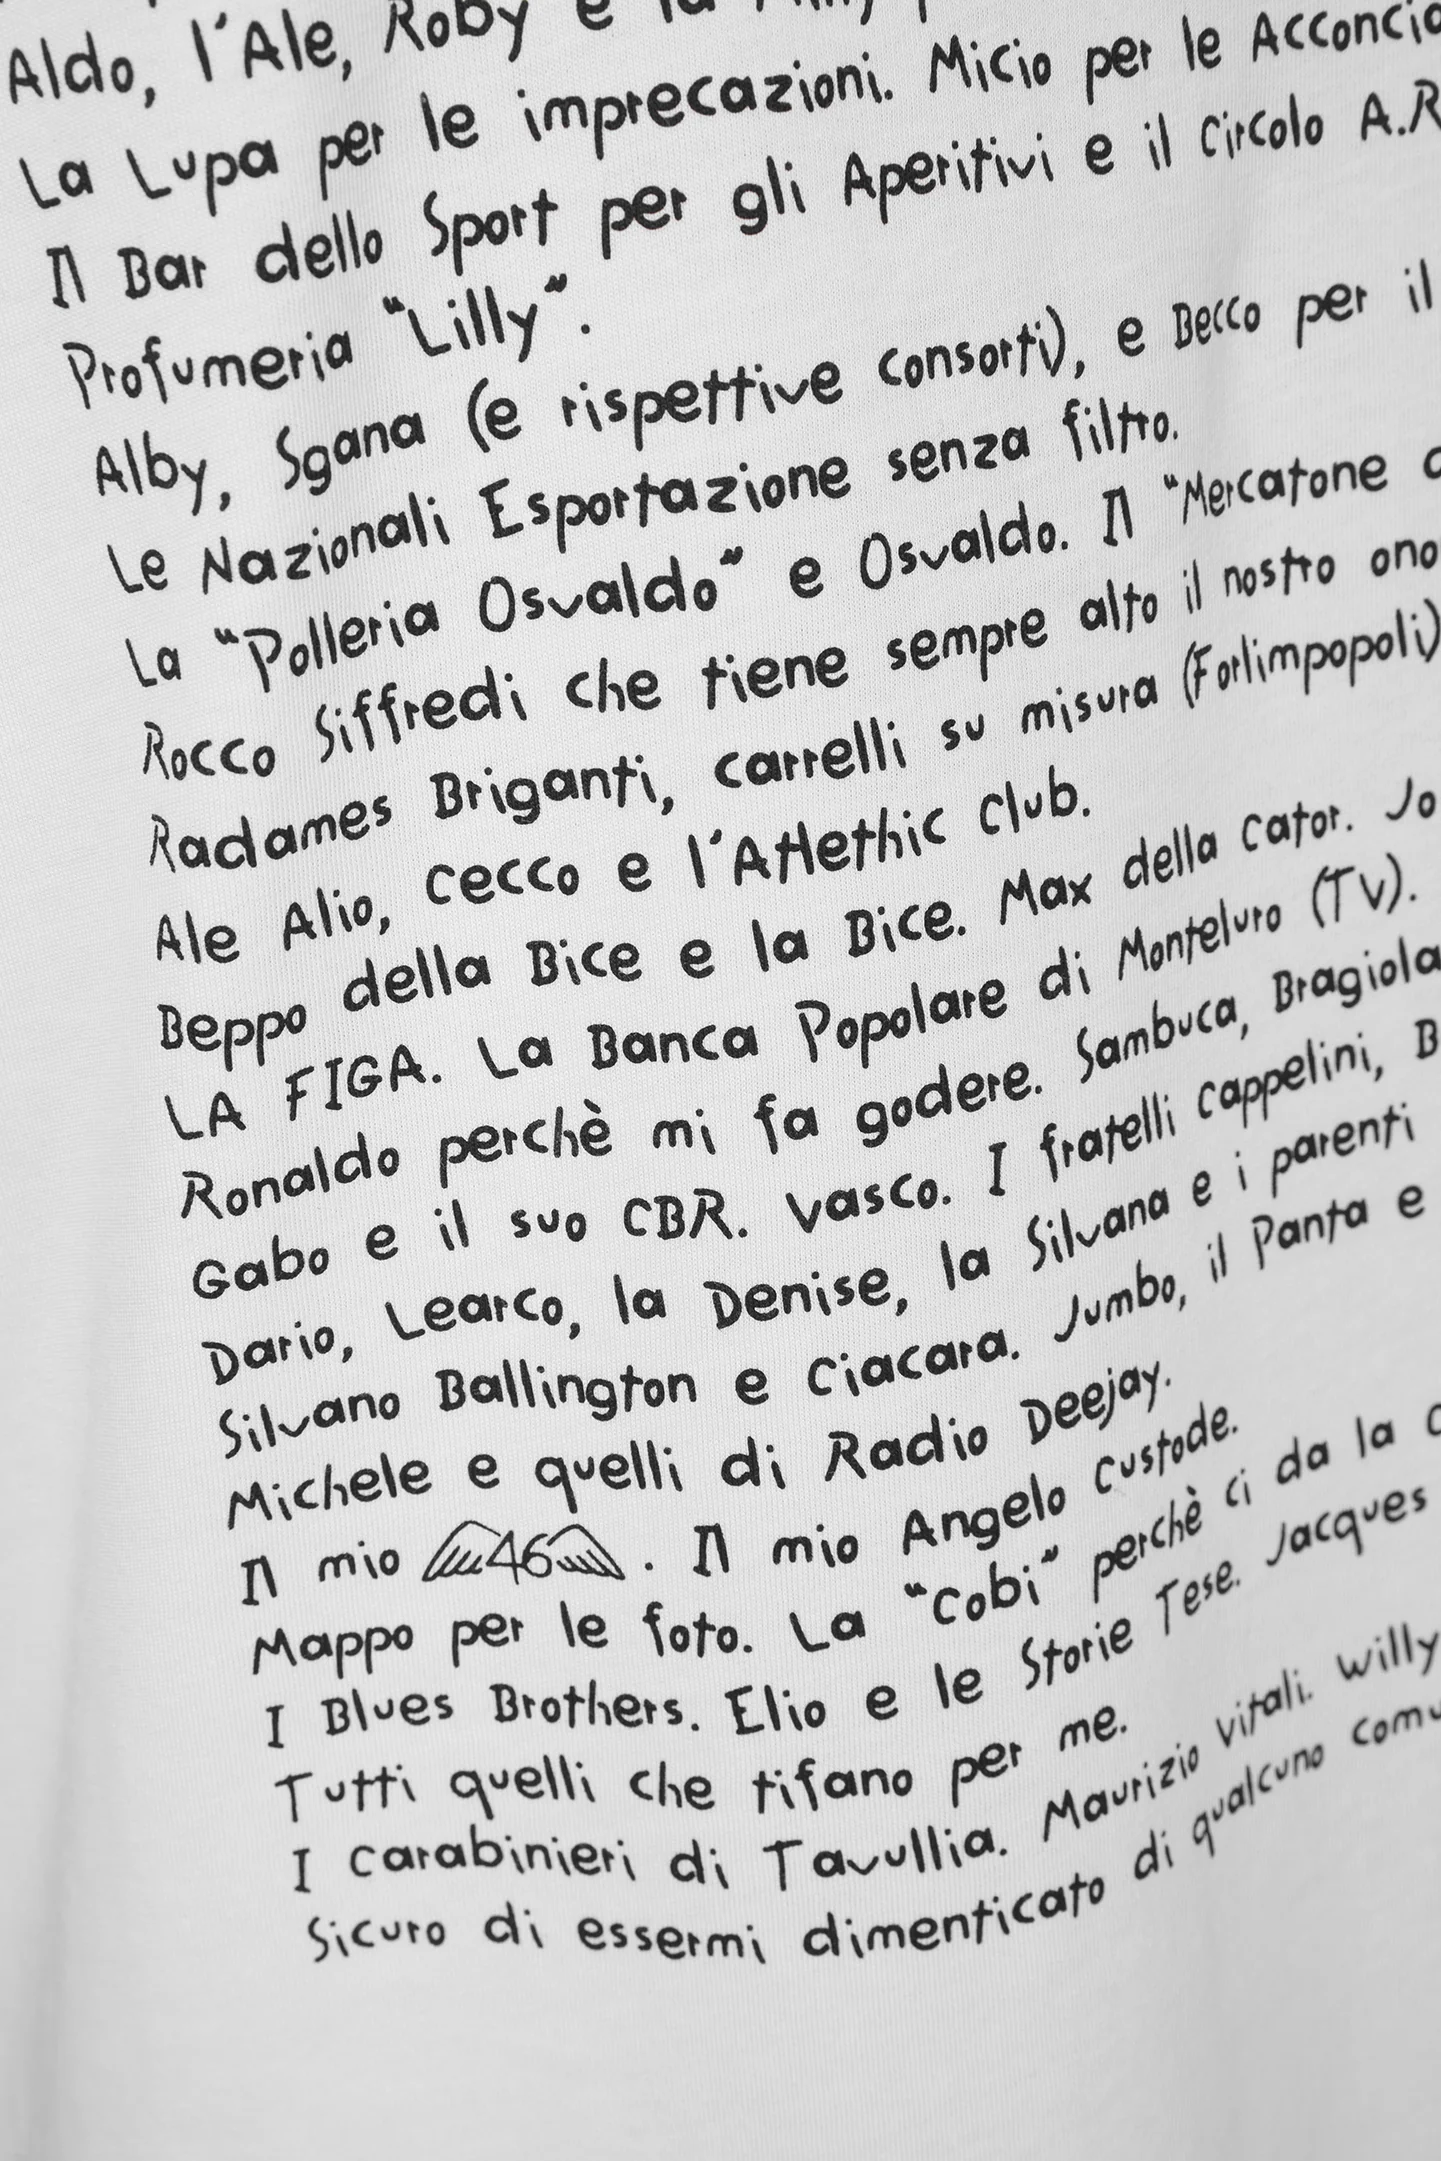 Aldo, l'Ale, Roby e la
La Lupa per le imprecazioni. Micio per le
Il Bar dello Sport per gli Aperitivi e il Circolo
Profumeria "Lilly".
Alby, Sgana (e rispettive consorti), e Becco per il
Le Nazionali Esportazione senza filtro.
La "Polleria Osvaldo" e Osvaldo. Il "Mercatone
Rocco Siffredi che tiene sempre alto il nostro
Radames Briganti, carrelli su misura (Forlimpopoli)
Ale Alio, Cecco e l'Atlethic Club.
Beppo della Bice e la Bice. Max della Cator.
LA FIGA. La Banca Popolare di Monteluro (TV).
Ronaldo perchè mi fa godere. Sambuca, Bragiola
Gabo e il suo CBR. Vasco. I fratelli Cappelini,
Dario, Learco, la Denise, la Silvana e i parenti
Silvano Ballington e Ciacara. Jumbo, il Panta e
Michele e quelli di Radio Deejay.
Il mio 46. Il mio Angelo Custode.
Mappo per le foto. La "Cobi" perchè ci da la
I Blues Brothers. Elio e le Storie Tese. Jacques
Tutti quelli che tifano per me.
I Carabinieri di Tavullia. Maurizio Vitali. Willy
Sicuro di essermi dimenticato di qualcuno